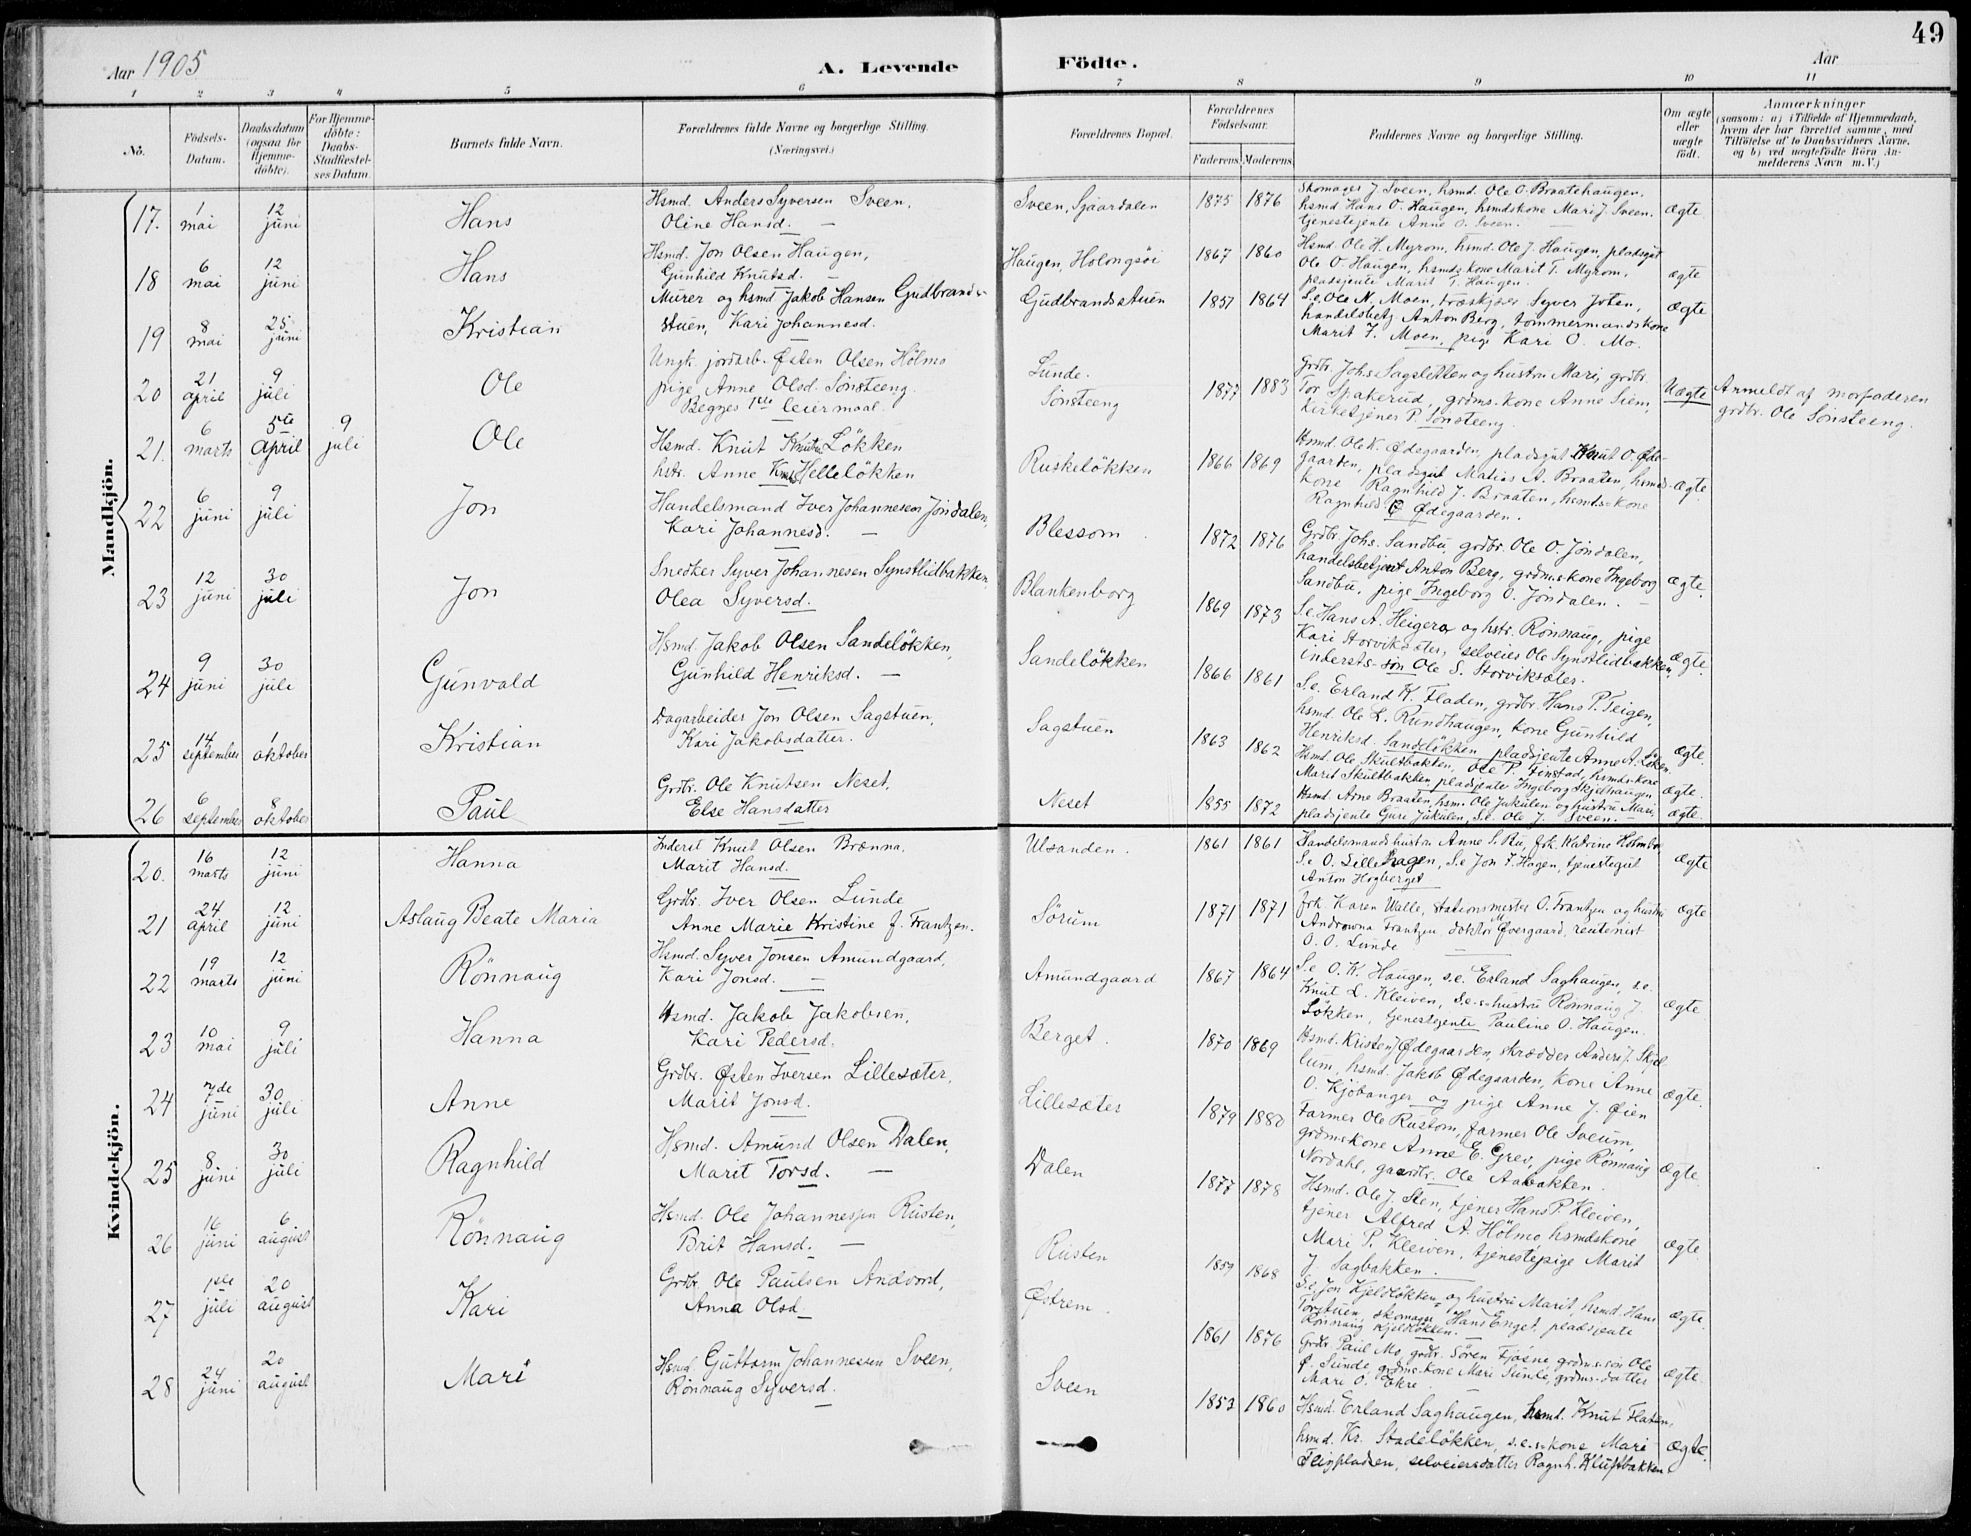 49
Aar 1905
A. Levende
Födte.
Aar
1 2 3 4 5 6 7 8 9 10 11
No.
Födsels-
Datum.
Daabsdatum
(ogsaa for
Hjemme-
döbte).
For Hjemme-
döbte:
Daabs-
Stadfæstel-
ses Datum.
Barnets fulde Navn.
Forældrenes fulde Navne og borgerlige Stilling.
(Næringsvei.)
Forældrenes Bopæl.
Forældrenes
Födselsaar.
Faderens Moderens
Faddernes Navne og borgerlige Stilling.
Om ægte
eller
uægte
födt.
Anmærkninger
(saasom: a) i Tilfælde af Hjemmedaab,
hvem der har forrettet samme, med
Tilföielse af to Daabsvidners Navne,
og b) ved uægtefödte Börn An-
melderens Navn m. V.)
Mandkjön.
17. 1 mai 12 juni Hans
Hsmd. Anders Syversen Sveen,
Oline Hansd. —
Sveen, Sjaardalen 1875 1876
Skomager J. Sveen, hsmd. Ole O. Braatehaugen,
hsmd Hans O. Haugen, hsmdskone Mari J. Sveen.
tjenestejente Anne O. Sveen. —
ægte
18 6 mai 12 juni Hans
Hsmd. Jon Olsen Haugen,
Gunhild Knutsd. —
Haugen, Holongsöi 1867 1860
Hsmd. Ole H. Myrom, hsmd. Ole J. Haugen, pladsgut
Ole O. Haugen, hsmdskone Marit T. Myrom,
pladsjente Marit T. Haugen.
ægte
19 8 mai 25 juni Kristian
Murer og hsmd Jakob Hansen Gudbrands-
stuen, Kari Johannesd.
Gudbrandsstuen 1857 1864
S.e. Ole N. Moen, træskjær Syver Joten,
handelsbetj Anton Berg, tømmermandskone
Marit J. Moen, pige Kari O. Mo.
ægte
20 21 april 9 juli Ole
Ungk. jordarb. Østen Olsen Hölmo
pige Anne Olsd. Sönsteeng.
Begges 1ste leiermaal.
Lunde.
Sönsteeng 1877 1883
Grdbr. Johs Sagsletten og hustru Mari, grdbr.
Tor Spakerud, grdms. kone Anne Siem,
Kirketjener P. Sönsteeng.
Uægte
Anmeldt af morfaderen
grdbr. Ole Sönsteeng.
21. 6 marts 5te April 9 juli Ole
Hsmd. Knut Knuts. Lökken
hstr. Anne Knuts. Hellelökken
Ruskelökken 1866 1869
Hsmd. Ole K. Ødegaarden, pladsgut Knut O. Øde-
gaarden, pladsgut Matias A. Braaten, hsmds-
kone Ragnhild J. Braaten, hsmdskone
Ragnhild Ødegaarden.
ægte
22 6 juni 9 juli Jon
Handelsmand Iver Johannesen Jöndalen,
Kari Johannesd. —
Blessom 1872 1876
Grdbr. Johs. Sandbu, grdbr. Ole O. Jöndalen,
handelsbetjent Anton Berg, grdmskone Ingeborg
Sandbu, pige Ingeborg O. Jöndalen. —
ægte.
23 12 juni 30 juli Jon
Snedker Syver Johannesen Synstlidbakken,
Olea Syversd.
Blankenborg 1869 1873
S.e. Hans A. Heigera og hstr. Rönnaug, pige
Kari Storviksæter, selveier Ole Synstlidbakken,
inderstssön Ole S. Storviksæter.
ægte.
24 9 juni 30 juli Gunvald
Hsmd. Jakob Olsen Sandelökken,
Gunhild Henriksd. —
Sandelökken 1866 1861
S.e. Erland K. Fladen, grdbr. Hans P. Teigen,
hsmd. Ole L. Rundhaugen, kone Gunhild
Henriksd. Sandelökken, pladsjente Anne A. Löken.
ægte.
25 14 september 1 oktober Kristian
Dagarbeider Jon Olsen Sagstuen,
Kari Jakobsdatter.
Sagstuen 1863 1862
Hsmd. Ole Skultbakken, Ole P. Finstad, hsmdskone
Marit Skultbakken, pladsjente Ingeborg Skjelhaugen
ægte.
26 6 september 8 oktober Paul
Grdbr. Ole Knutsen Neset,
Else Hansdatter
Neset 1855 1872
Hsmd Arne Braaten, hsm. Ole Jukulen og hustru Mari,
pladsjente Guri Jukulen, S.e. Ole J. Sveen. —
ægte.
Kvindekjön.
20. 16 marts 12 juni Hanna
Inderst Knut Olsen Brænna,
Marit Hansd.
Ulsanden. 1861 1861
Handelsmandshustru Anne S. Bu, frk. Katrine Holmbo,
S.e O. Lillehagen, S.e Jon F. Hagen, tjenestegut
Anton Hogberget
ægte
21 24 april 12 juni Aslaug Beate Maria
Grdbr. Iver Olsen Lunde
Anne Marie Kristine f. Frantzen.
Sörum 1871 1871
frk. Karen Walle, stationsmester O. Frantzen og hustru
Frantzen, doktor Øvergaard, rentenist
O. O. Lunde
ægte
22 19 marts 12 juni Rönnaug
Hsmd. Syver Jonsen Amundgaard,
Kari Jonsd. —
Amundgaard 1867 1864
S.e. O. K. Haugen, s.e. Erland Saghaugen, s.e.
Knut L. Kleiven, s.e.s hustru Rönnaug J.
Lökken, tjenestejente Pauline O. Haugen.
ægte
23 10 mai 9 juli Hanna
Hsmd. Jakob Jakobsen,
Kari Pedersd.
Berget. 1870 1869
Hsmd. Kristen J Ødegaarden, skrædder Anders J. Skjel-
lum, hsmd. Jakob Ødegaarden, kone Anne
O. Kjöbanger og pige Anne J. Øien
ægte.
24 7de juni 30 juli Anne
Grdbr. Østen Iversen Lillesæter,
Marit Jonsd.
Lillesæter 1879 1880
Farmer Ole Rustom, farmer Ole Sveum,
grdmskone Anne E. Grev, pige Rönnaug
Nordahl, gaardbr. Ole Aabakken.
ægte
25 8 juni 30 juli Ragnhild
Hsmd. Amund Olsen Dalen,
Marit Torsd. —
Dalen 1877 1878
Hsmd. Ole J. Sten, tjener Hans P. Kleiven,
tjener Alfred A. Hölmo hsmdskone
Mari P. Kleiven, tjenestepige Marit
J. Sagbakken.
ægte
26 16 juni 6 august Rönnaug
Hsmd. Ole Johannessen Rusten,
Brit Hansd. —
Rusten 1859 1868
S.e. Jon Kjeldlökken, og hustru Marit, hsmd. Hans
Torstuen, skomager Hans Enget, pladsjente
Rönnaug Kjeldlökken. —
ægte.
27 1ste juli 20 august Kari
Grdbr. Ole Paulsen Andvord,
Anna Olsd.
Østrem. 1861 1876
Grdbr. Paul Mo, grdbr. Sören Fjösne, grdms. sön Ole
P. Sunde, grdmskone Mari Sunde, grdms. datter
Mari O. Ekre.
ægte
28 24 juni 20 august Mari
Hsmd. Guttorm Johannessen Sveen,
Rönnaug Syversd.
Sveen 1853 1860
Hsmd. Erland Saghaugen, hsmd. Knut Flaten,
hsmd. Kr. Stadelökken, s.e.s kone Mari
selveiersdatter Ragnh. Kluftbakken
ægte.